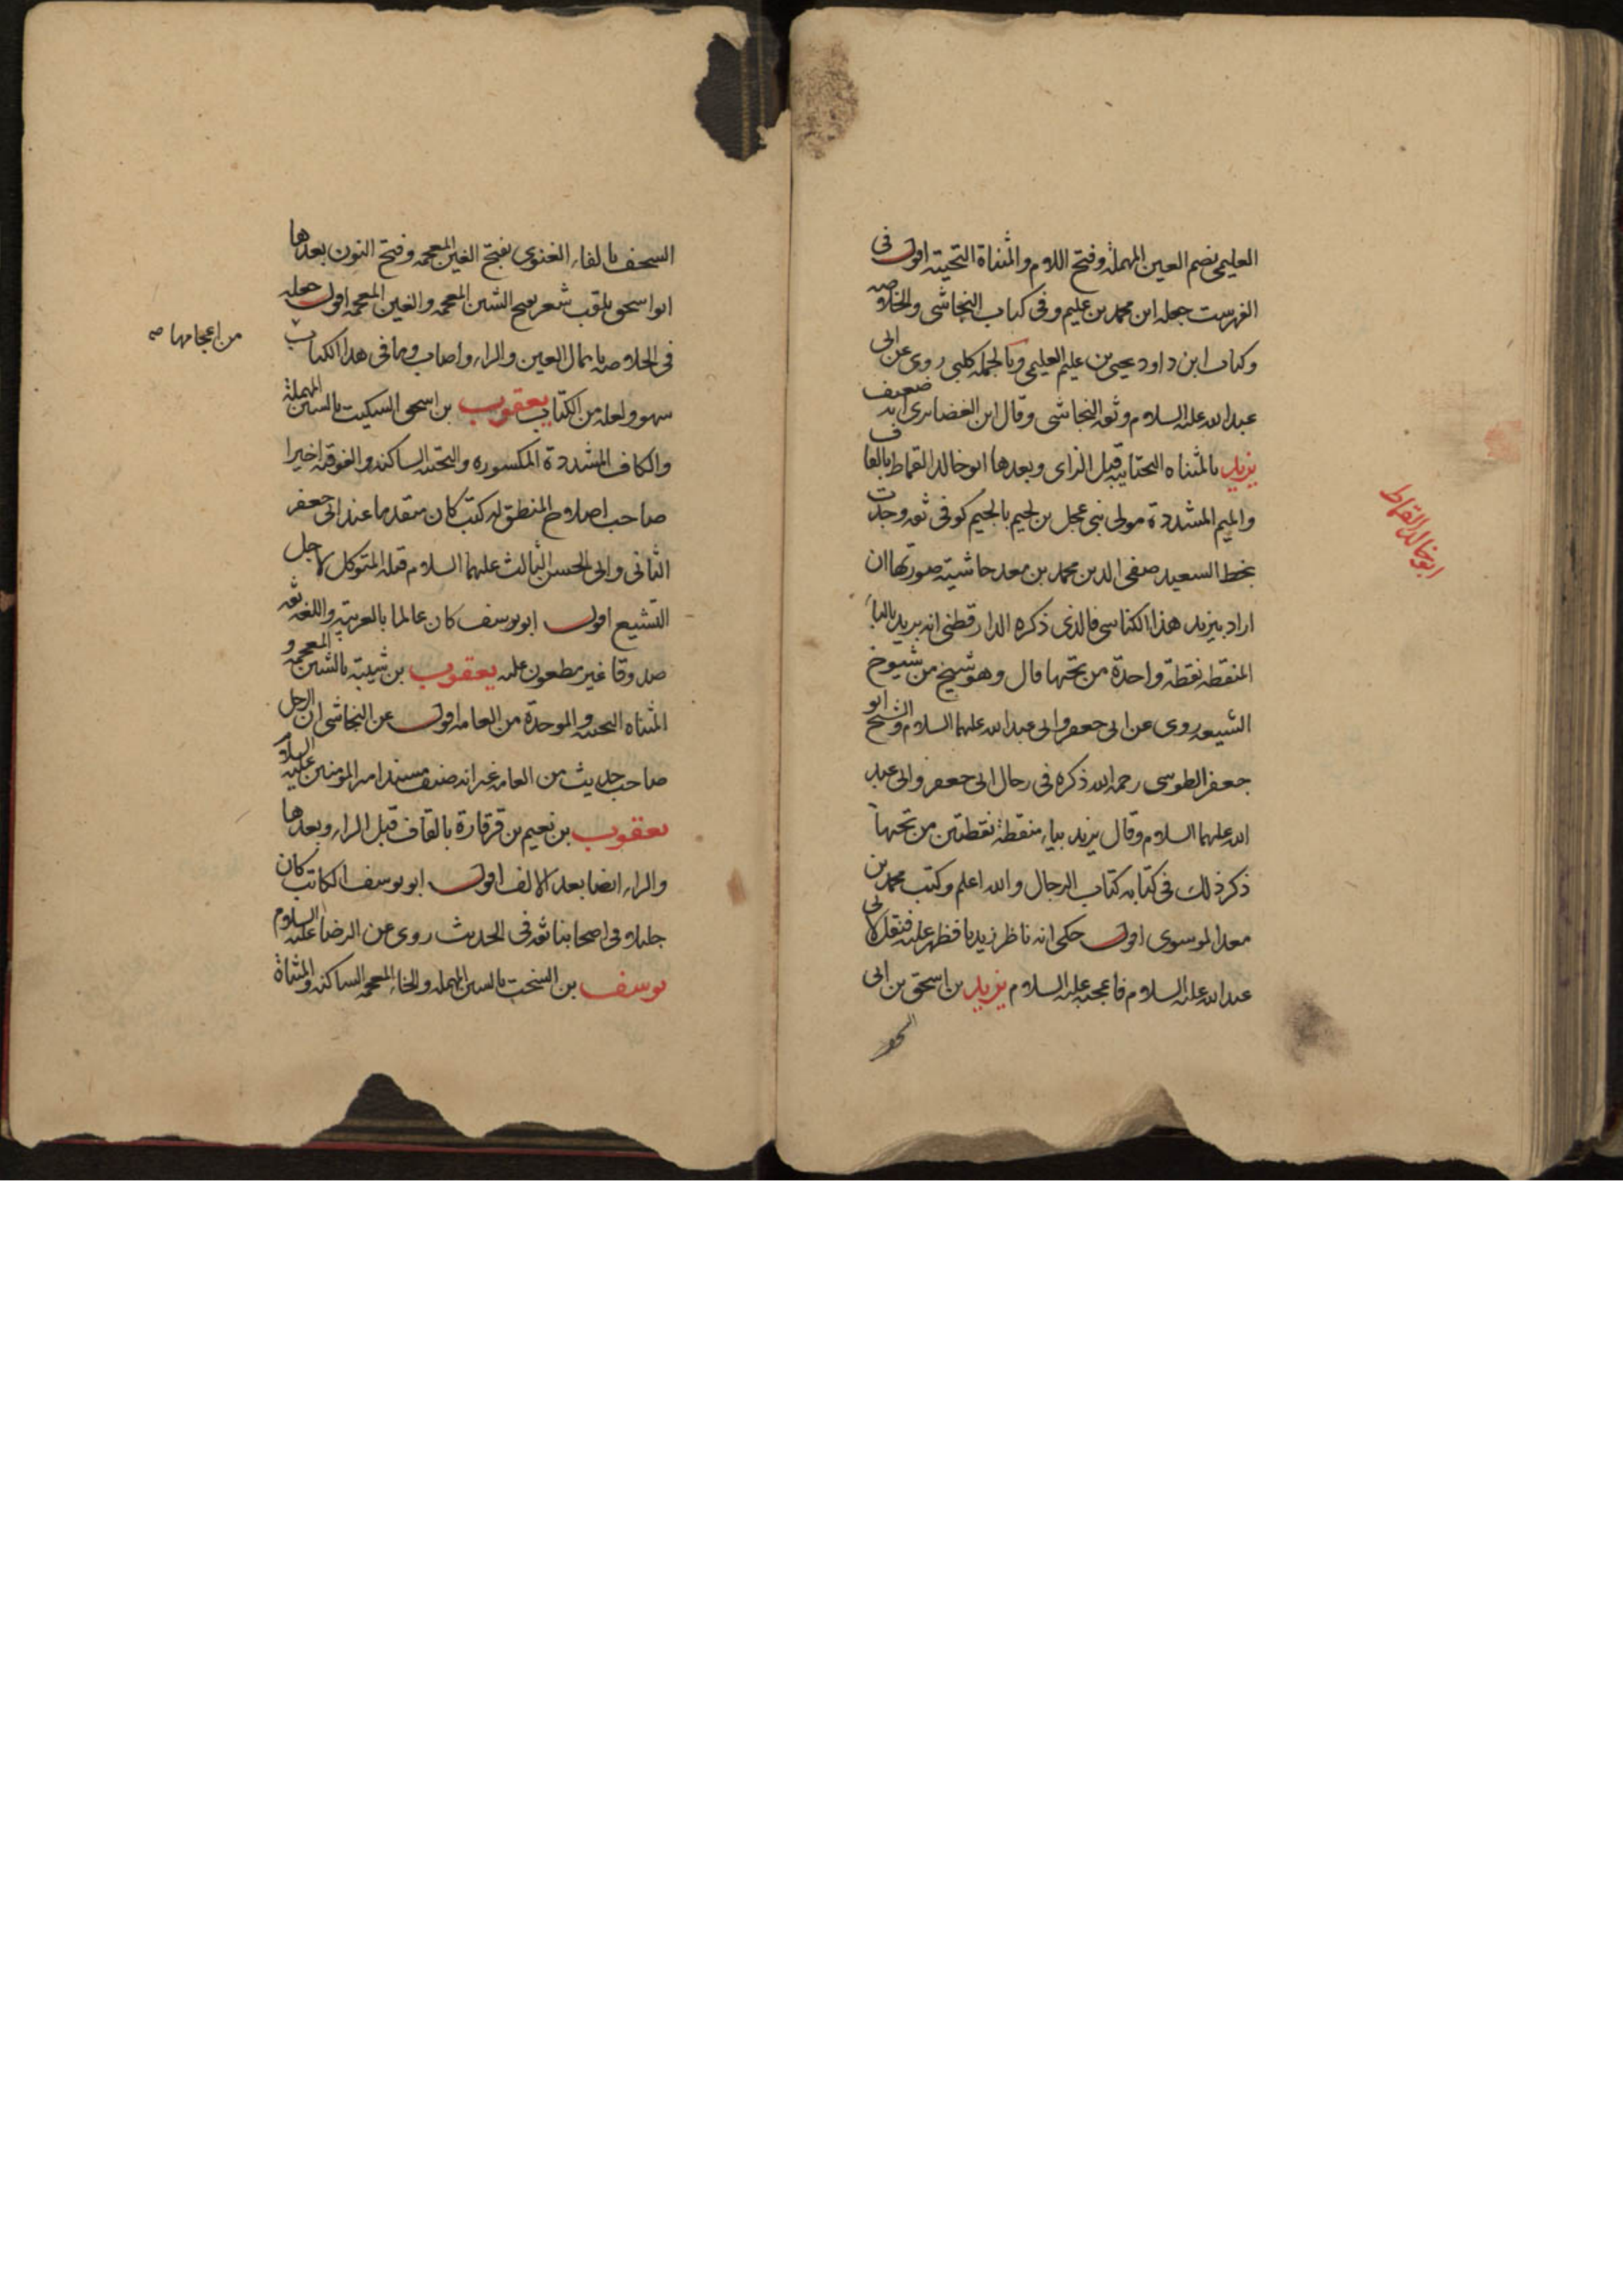 العليمي بضم العين المهملة وفتح اللام والمثناة التحيته اقول فى
الفهرست جعله ابن محمد بن عليم وفى كتاب النجاشى والخلاصه
وكتاب ابن داود يحيى بن عليم العليمى وبالجمله كلبى روى عن ابى
عبد الله عليه السلام وثقه النجاشى وقال ابن الغضايرى انه ضعيف
يزيد بالمثناه التحتانيه قبل الزاى وبعدها ابو خالد القماط بالقاف
والميم المشددة مولى بنى عجل بن لجيم بالجيم كوفى ثقه وجدت
بخط السعيد صفى الدين محمد بن معد حاشيته صورتها ان
اراد بيزيد هذا الكناسى فالذى ذكره الدارقطنى انه بريد بالباء
المنقطه نقطة واحدة من تحتها قال وهو شيخ من شيوخ
الشيعه روى عن ابى جعفر وابى عبد الله عليهما السلام والشيخ ابو
جعفر الطوسى رحمه الله ذكره فى رجال ابى جعفر وابى عبد
الله عليهما السلام وقال يزيد بياء منقطة نقطتين من تحتها
ذكر ذلك فى كتابه كتاب الرجال والله اعلم وكتب محمد بن
معد الموسوى اقول حكى انه ناظر زيديا فظهر عليه فنقل لابى
عبد الله عليه السلام فاعجبه عليه السلام يزيد بن اسحق بن ابى
السخف
ابو خالد القماط
السخف بالفاء الغنوى بفتح الغين المعجمه وفتح النون بعدها
ابو اسحق يلقب شعر بفتح الشين المعجمه والغين المعجمه اقول جعله
فى الخلاصه باهمال العين والراء واصاب وما فى هذا الكتاب
من اعجامها صه
سهو ولعله من الكتاب يعقوب بن اسحق السكيت بالسين المهملة
والكاف المشددة المكسوره والتحتيه الساكنه والفوقيه اخيرا
صاحب اصلاح المنطق له كتب كان متقدما عند ابى جعفر
الثانى وابى الحسن الثالث عليهما السلام قتله المتوكل لاجل
التشيع اقول ابو يوسف كان عالما بالعربية واللغه ثقه
صدوقا غير مطعون عليه يعقوب بن شيبة بالشين المعجمه و
المثناه التحتيه والموحدة من العامه اقول عن النجاشى ان الرجل
صاحب حديث من العامه غير انه صنف مسند امير المومنين عليه السلام
يعقوب بن نعيم بن قرقارة بالقاف قبل الراء وبعدها
والراء ايضا بعد الالف اقول ابو يوسف الكاتب كان
جليلا فى اصحابنا ثقه فى الحديث روى عن الرضا عليه السلام
يوسف بن السخت بالسين المهمله والخاء المعجمه الساكنه والمثناة